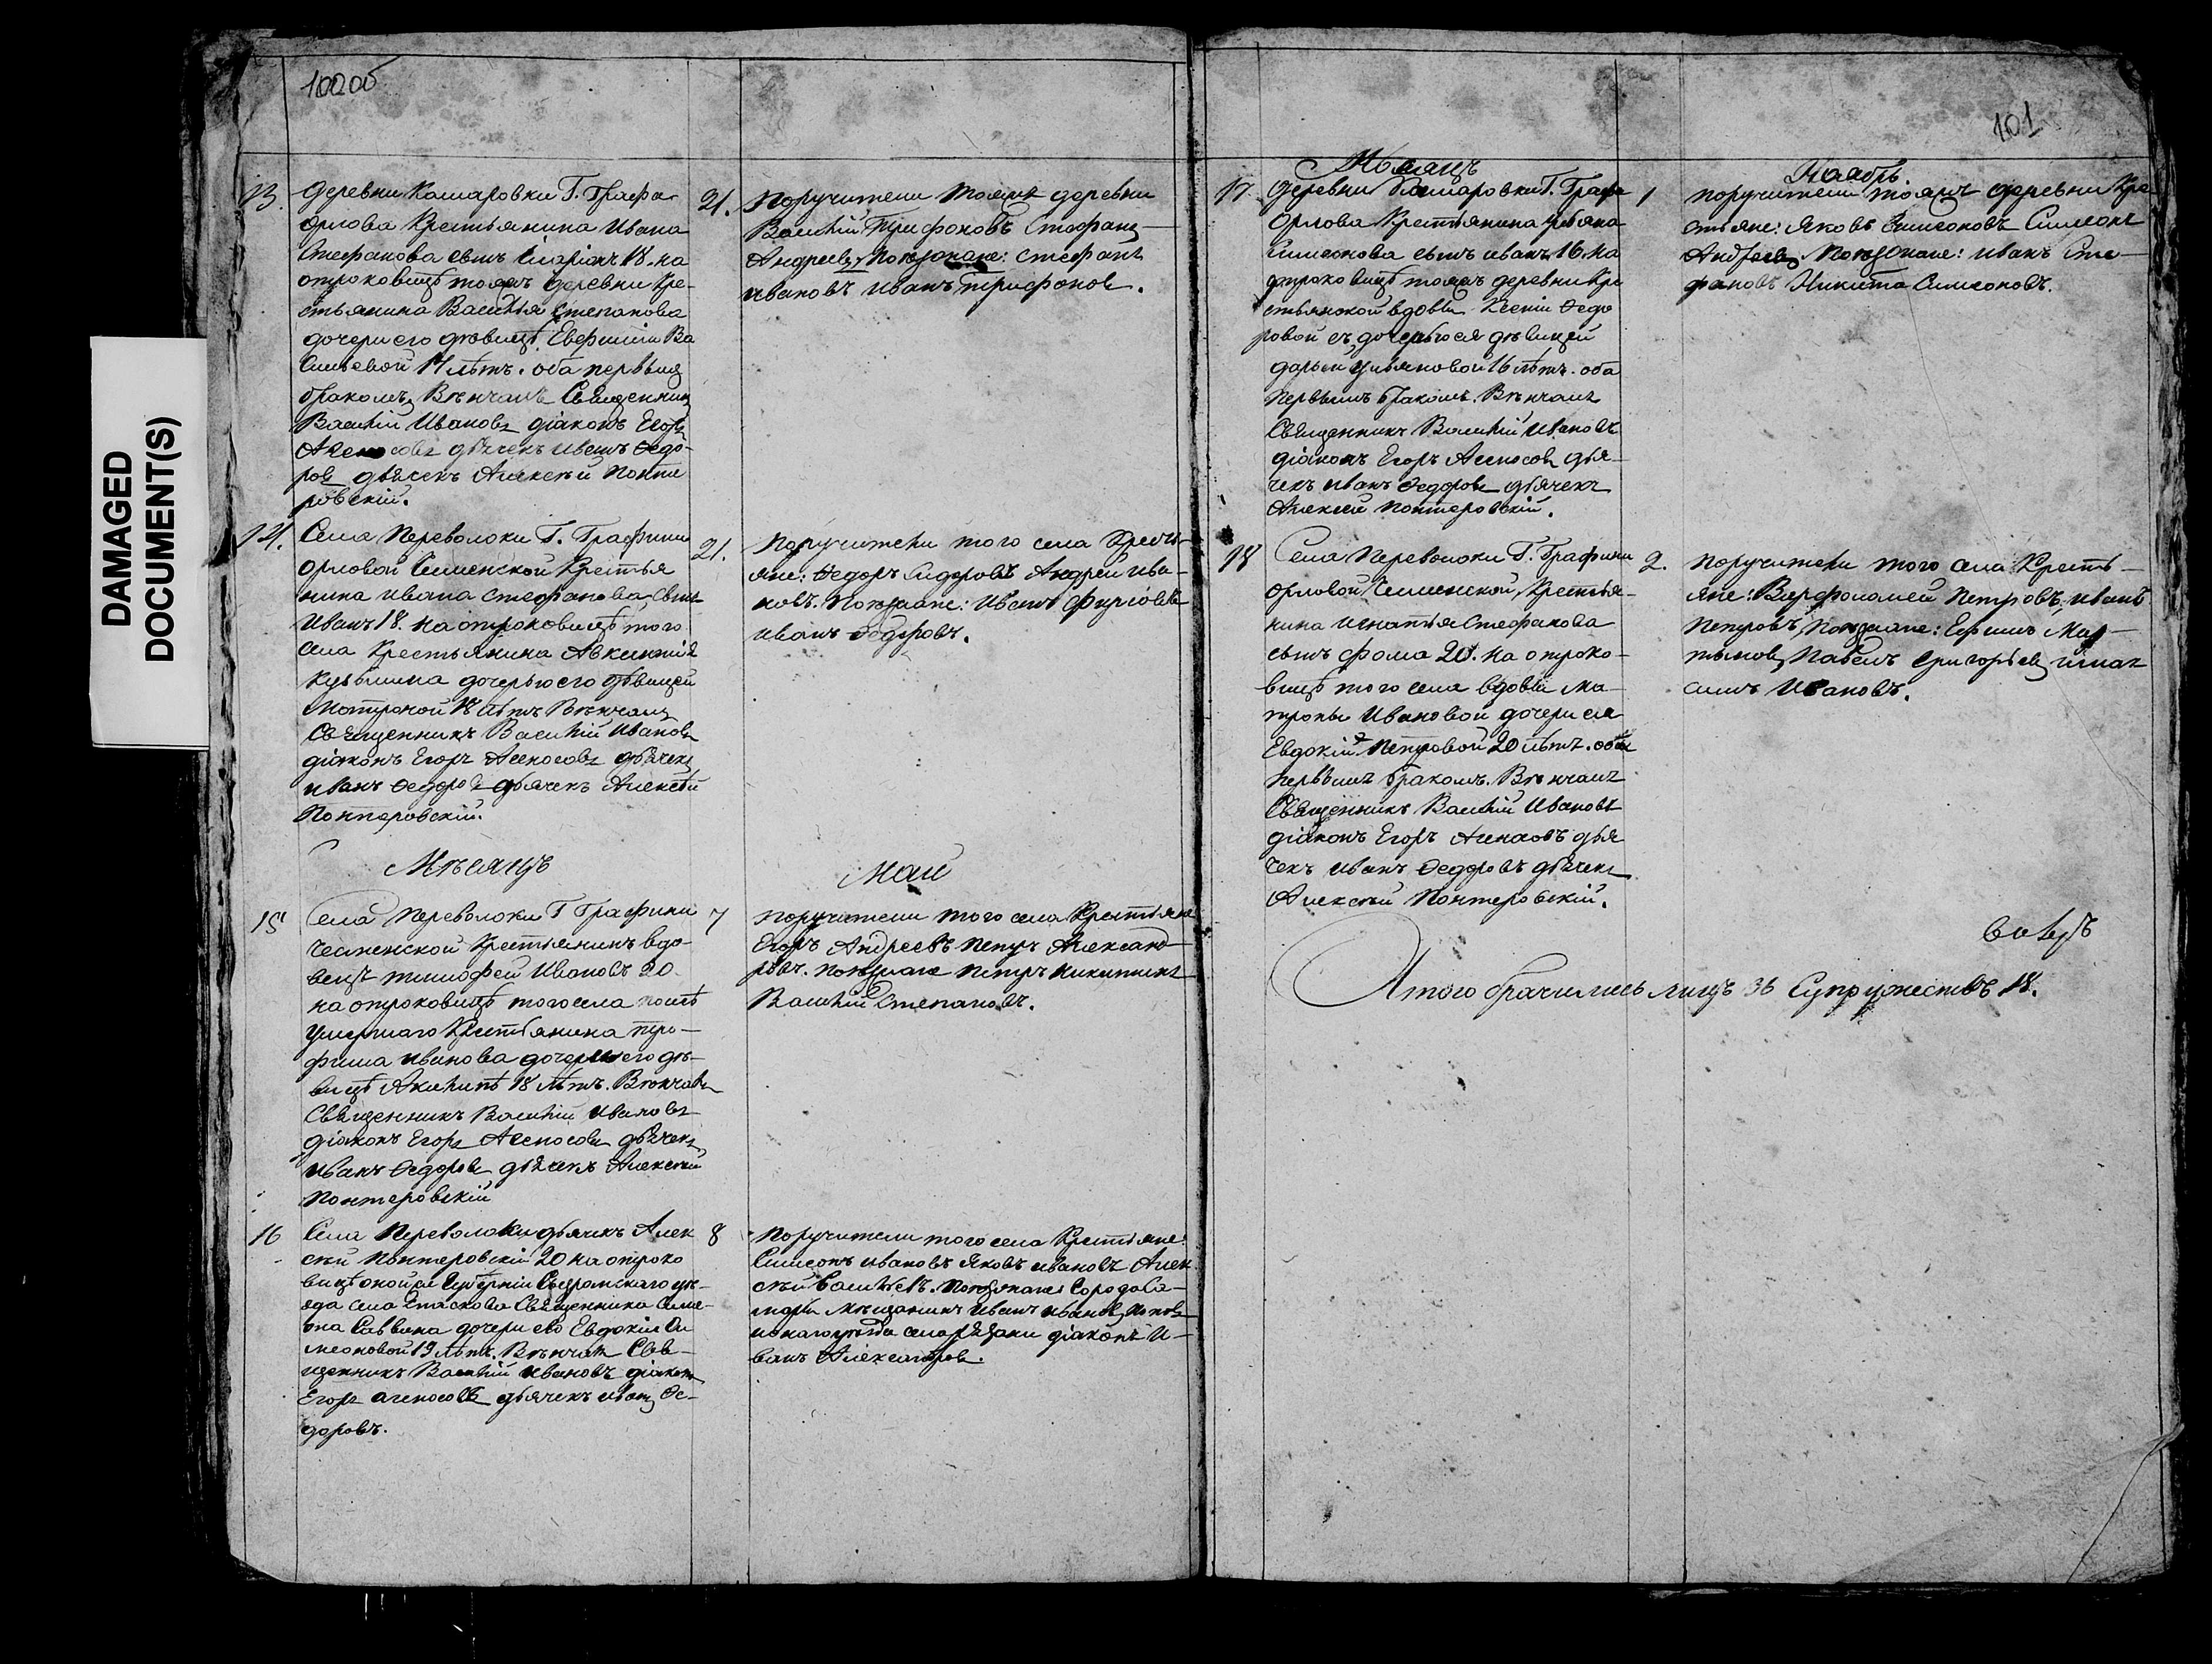 DAMAGED
DOCUMENT(S)
100об
13. Деревни Комаровки Г. Графа
Орлова Крестьянина Ивана
Стефанова сынъ Иларіонъ 18. на
отроковицѣ тояжъ деревни Кре-
стьянина Василья Степанова
дочери его дѣвицѣ Евфиміи Ва
сильевой 17 лѣтъ. оба первымъ
бракомъ, Вѣнчалъ Священникъ
Василій Ивановъ діаконъ Егоръ
дьячекъ Иванъ Ѳедо-
ровъ дьячекъ Алексѣй Понте
ровскій.
21. Поручители тояжъ деревни
Василій Трифоновъ Стефанъ
Андреевъ, Поѣзжане: Стефанъ
Ивановъ Иванъ Трифоновъ.
14. Села Переволоки Г. Графини
Орловой Чесменской Крестья
нина Ивана Стефанова сынъ
Иванъ 18. на отроковицѣ того
села Крестьянина Авксентія
Кузьмина дочерью его дѣвицей
Матроной 18 лѣтъ Вѣнчалъ
Священникъ Василій Ивановъ
діаконъ Егоръ дьячекъ
Иванъ Ѳедоровъ дьячекъ Алексѣй
Понтеровскій.
21. Поручители того села Кресть-
яне: Ѳедоръ Сидоровъ Андрей Ива-
новъ. Поѣзжане: Иванъ Фирсовъ
Иванъ Ѳедоровъ.
Мѣсяцъ Май
15 Села Переволоки Г Графини
Чесменской Крестьянинъ вдо-
вецъ Тимофей Ивановъ 20.
на отроковицѣ того села послѣ
умершаго Крестьянина Тро-
фима Иванова дочери его дѣ-
вицѣ Акилинѣ 18 лѣтъ. Вѣнчалъ
Священникъ Василій Ивановъ
діаконъ Егоръ дьячекъ
Иванъ Ѳедоровъ дьячекъ Алексѣй
Понтеровскій
7 Поручители того села Крестьяне
Егоръ Андреевъ Петръ Александ-
ровъ. Поѣзжане Петръ Никитинъ
Василій Степановъ.
16 Села Переволоки дьячекъ Алек
сѣй Понтеровскій 20 на отроко
вицѣ оной же Губерніи Сызранскаго уѣ-
зда села Священника Симе-
она Саввина дочери его Евдокіи Си
меоновой 19 лѣтъ. Вѣнчалъ Свя-
щенникъ Василій Ивановъ діаконъ
Егоръ дьячекъ Иванъ Ѳе-
доровъ.
8 Поручители того села Крестьяне:
Симеонъ Ивановъ Яковъ Ивановъ Алек
сѣй Васильевъ. Поѣзжане Города Са-
мары Мѣщанинъ Иванъ Ивановъ,
уѣзда села діаконъ И-
ванъ Александровъ.
101
Мѣсяцъ Ноябрь
17 Деревни Комаровки Г. Графа
Орлова Крестьянина Ульяна
Симеонова сынъ Иванъ 16. на
отроковицѣ тояжъ деревни Кре
стьянской вдовы Ксеніи Ѳедо
ровой съ дочерью ея дѣвицей
Дарьей Ульяновой 16 лѣтъ. оба
первымъ бракомъ. Вѣнчалъ
Священникъ Василій Ивановъ
діаконъ Егоръ дья-
чекъ Иванъ Ѳедоровъ дьячекъ
Алексѣй Понтеровскій.
1 Поручители тояжъ деревни Кре
стьяне: Яковъ Симеоновъ Симеонъ
Андреевъ, Поѣзжане: Иванъ Сте-
фановъ Никита Симеоновъ.
18 Села Переволоки Г. Графини
Орловой Чесменской, Крестья-
нина Игнатья Стефанова
сынъ Фома 20. на отроко-
вицѣ того села вдовы Ма-
троны Ивановой дочери ея
Евдокіи Петровой 20 лѣтъ. оба
первымъ бракомъ. Вѣнчалъ
Священникъ Василій Ивановъ
діаконъ Егоръ дья
чекъ Иванъ Ѳедоровъ дьячекъ
Алексѣй Понтеровскій.
2. Поручители того села Кресть-
яне: Верфоломей Петровъ, Иванъ
Петровъ, Поѣзжане: Ефимъ Мар-
тыновъ, Павелъ Григорьевъ,
Ивановъ.
Итого брачились лицъ 36 Супружествъ 18.